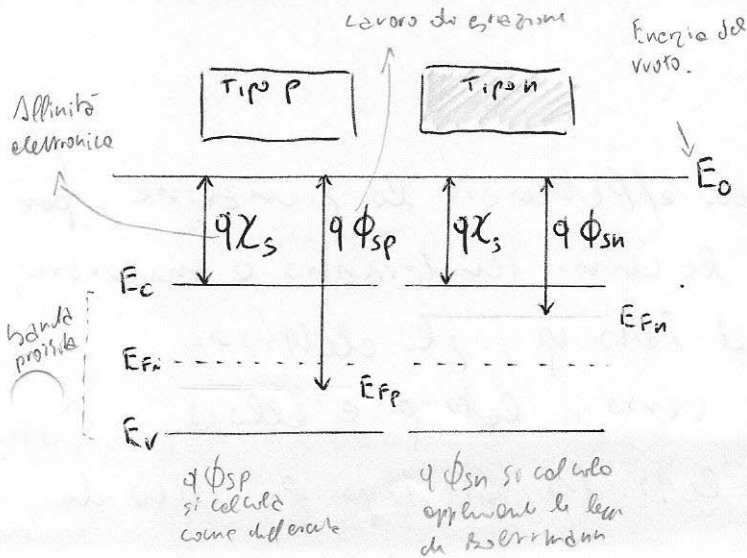 Lavoro di estrazione
Energia del
vuoto.
Affinità
elettronica
Tipo p
Tipo n
E0
qχs
qϕsp
qχs
qϕsn
Ec
EFn
banda
proibita
EFi
EFp
Ev
qϕsp
si calcola
come differenza
qϕsn si calcola
applicando la legge
di Boltzmann